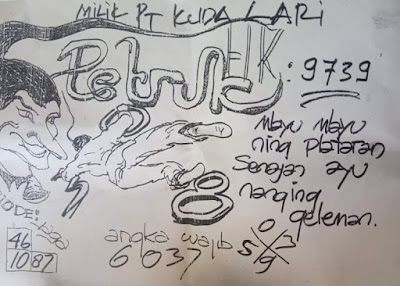 MILIK PT KUDA LARI
Petruk
EIK : 9739
Mayu Mayu
ning plataran
Senajan ayu
nanging
geleman.
KODE:
46
10 87
angka wajib
6037
0
5 3
9